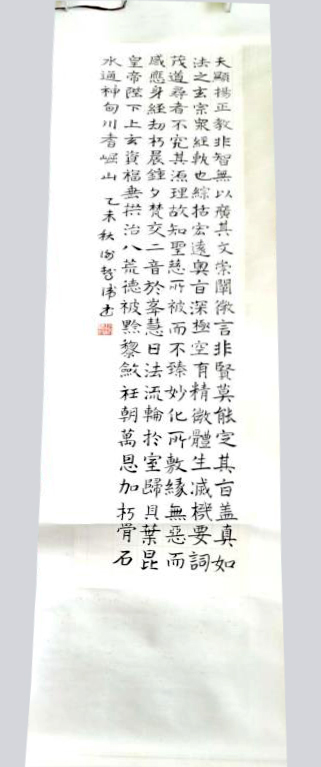 夫顯揚正教非智無以廣其文崇闡微言非賢莫能定其旨盖真如
法之玄宗衆經軌也綜括宏遠奧旨深極空有精微體生滅機要詞
茂道尋者不究其源理故知聖慈所被而不臻妙化所敷緣無惡而
感應身經劫朽晨鐘夕梵交二音於峯慧日法流輪於室歸具葉昆
皇帝陛下上玄資福垂拱治八荒德被黔黎斂衽朝萬恩加朽骨石
水通神甸川耆崛山 乙未秋